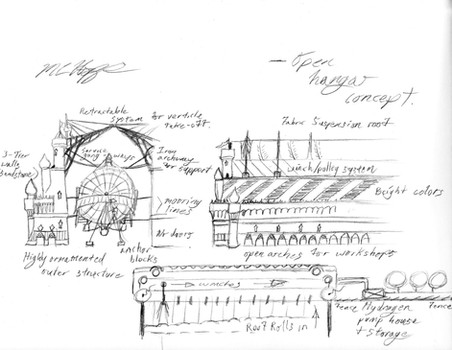 — open
hangar
concept.
Retractable
system for verticle
take-off.
Fabric Suspension roof
3-Tier
walls
Sandstone
Service
gang ways
Iron
archway
for support
winch/pulley system
Bright colors
mooring
lines
Air doors
Highly ornamented
outer structure
anchor
blocks
open arches for workshops
winches
Roof Rolls in
Fence
Hydrogen
pump house
+ Storage
Fence